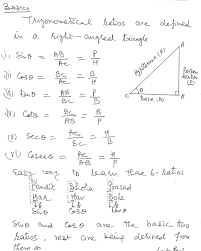 Basics
Trigonometrical ratios are defined
in a right-angled triangle
(i) Sinθ = AB/AC = P/H
(ii) Cosθ = BC/AC = B/H
(iii) tanθ = AB/BC = P/B
(iv) Cotθ = BC/AB = B/P
(v) Secθ = AC/BC = H/B
(vi) Cosecθ = AC/AB = H/P
A
Hypotenuse (H)
(P)
θ
C
Base (B)
B
Easy way to learn these 6-ratios
Pandit Bhola Prasad
Har Har Bole
Sinθ Cosθ tanθ
Sinθ and Cosθ are the basic two
ratios, rest are being derived from